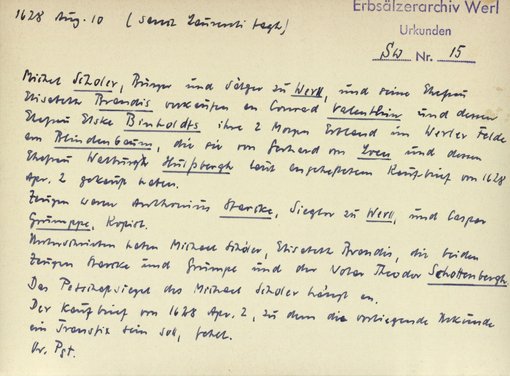 1628 Aug. 10 (Sanct Laurenti tagh)
Erbsälzerarchiv Werl
Urkunden
Sw Nr. 15
Michel Schöler, Bürger und Sälzer zu Werll, und seine Ehefrau
Elisabeth Brandis verkaufen an Conrad Valenthin und dessen
Ehefrau Elske Binholdts ihre 2 Morgen Erbland im Werler Felde
am Blindenbaum, die sie von Gerhard von und dessen
Ehefrau Walburgh Hulßbergh laut angeheftetem Kaufbrief von 1628
Apr. 2 gekauft haben.
Zeugen waren Anthonius Starcke, Siegler zu Werll, und Caspar
Grumppe, Kopist.
Unterschrieben haben Michael Schöler, Elisabeth Brandis, die beiden
Zeugen Starcke und Grumpe und der Notar Theodor Schottenbergh.
Das Petschaftsiegel des Michael Schöler hängt an.
Der Kaufbrief von 1628 Apr. 2, zu dem die vorliegende Urkunde
ein Transfix sein soll, fehlt.
Or. Pgt.